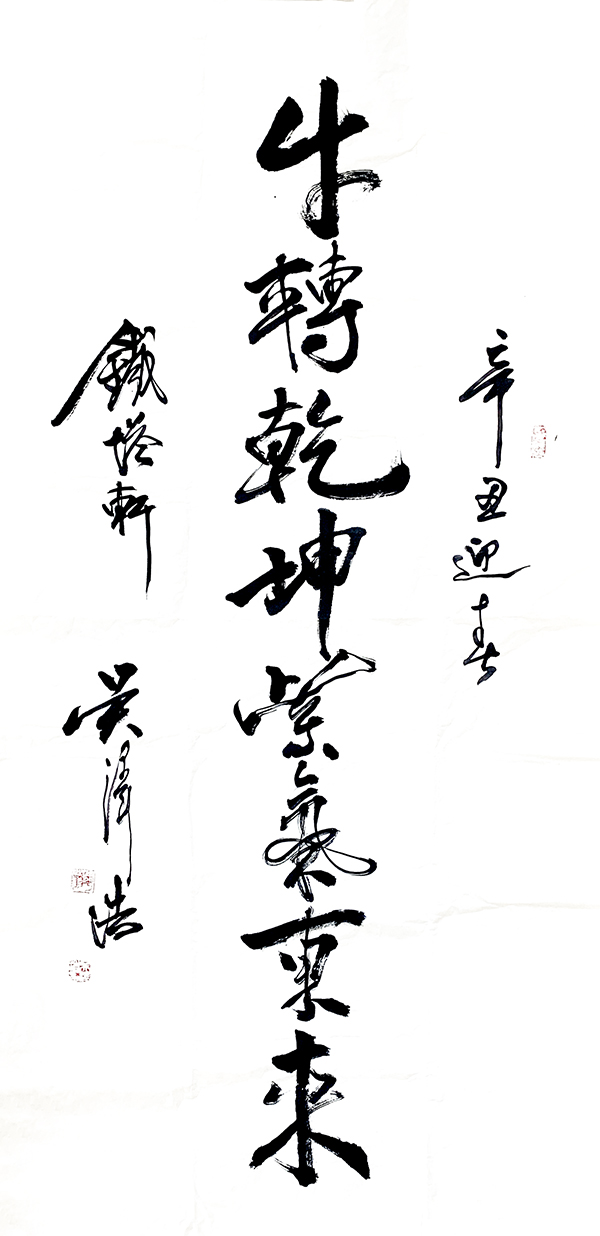 辛丑迎春
牛轉乾坤紫氣東來
鐵塔軒 吴澤浩